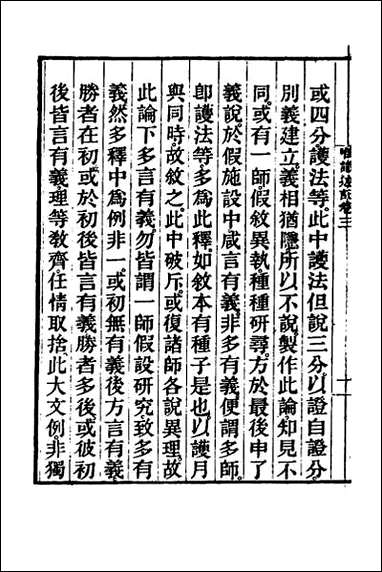 或四分。護法等。此中護法但說三分。以證自證分。
別義建立。義相猶隱。所以不說。製作此論。知見不
同。或有一師。假敘異執。種種研尋。方於最後申了
義說。於假施設中咸言有義。非多有義。便謂多師。
卽護法等。多為此釋。如敘本有種子是也。以護月
與同時。故敘之此中破斥。或復諸師各說異理。故
此論下多言有義。勿皆謂一師假設研究致多有
義。然多釋中為例非一。或初無有義後方言有義。
勝者在初。或於初後皆言有義。勝者多後。或彼初
後皆言有義。理等教齊。任情取捨。此大文例。非獨